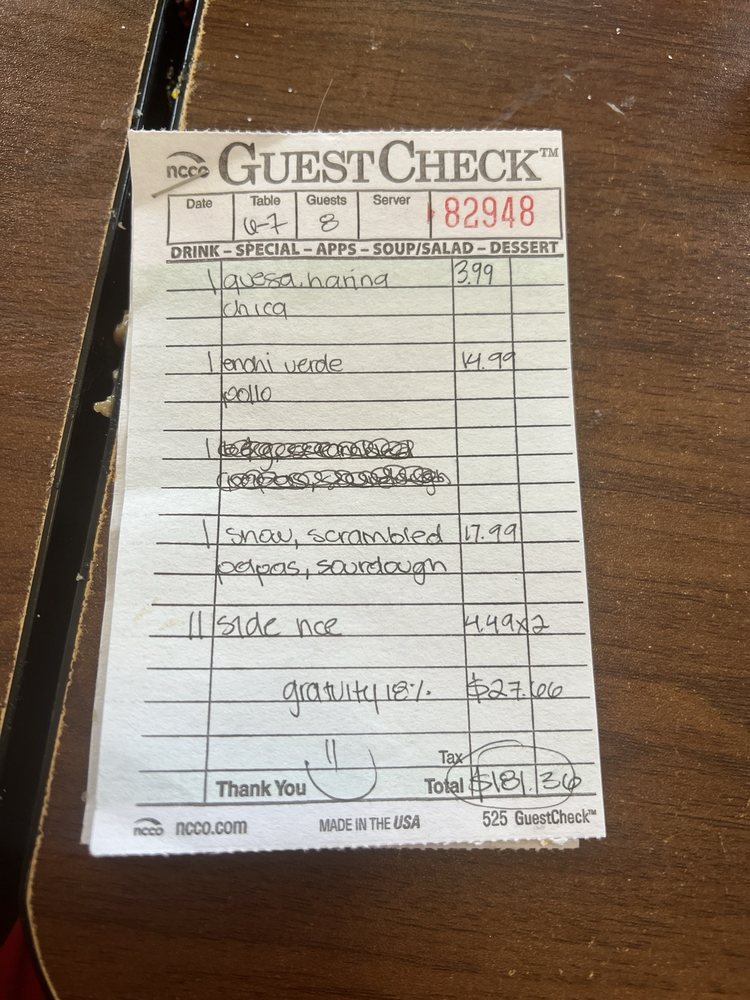 ncco GUEST CHECK™
Date Table Guests Server
6-7 8 82948
DRINK – SPECIAL – APPS – SOUP/SALAD – DESSERT
1 quesa, harina 3.99
chica
1 enchi verde 14.99
pollo
1
1 shav, scrambled 17.99
papas, sourdough
11 side rice 4.49x2
gratuity 18% $27.66
Tax
Thank You Total $181.36
ncco ncco.com MADE IN THE USA 525 GuestCheck™